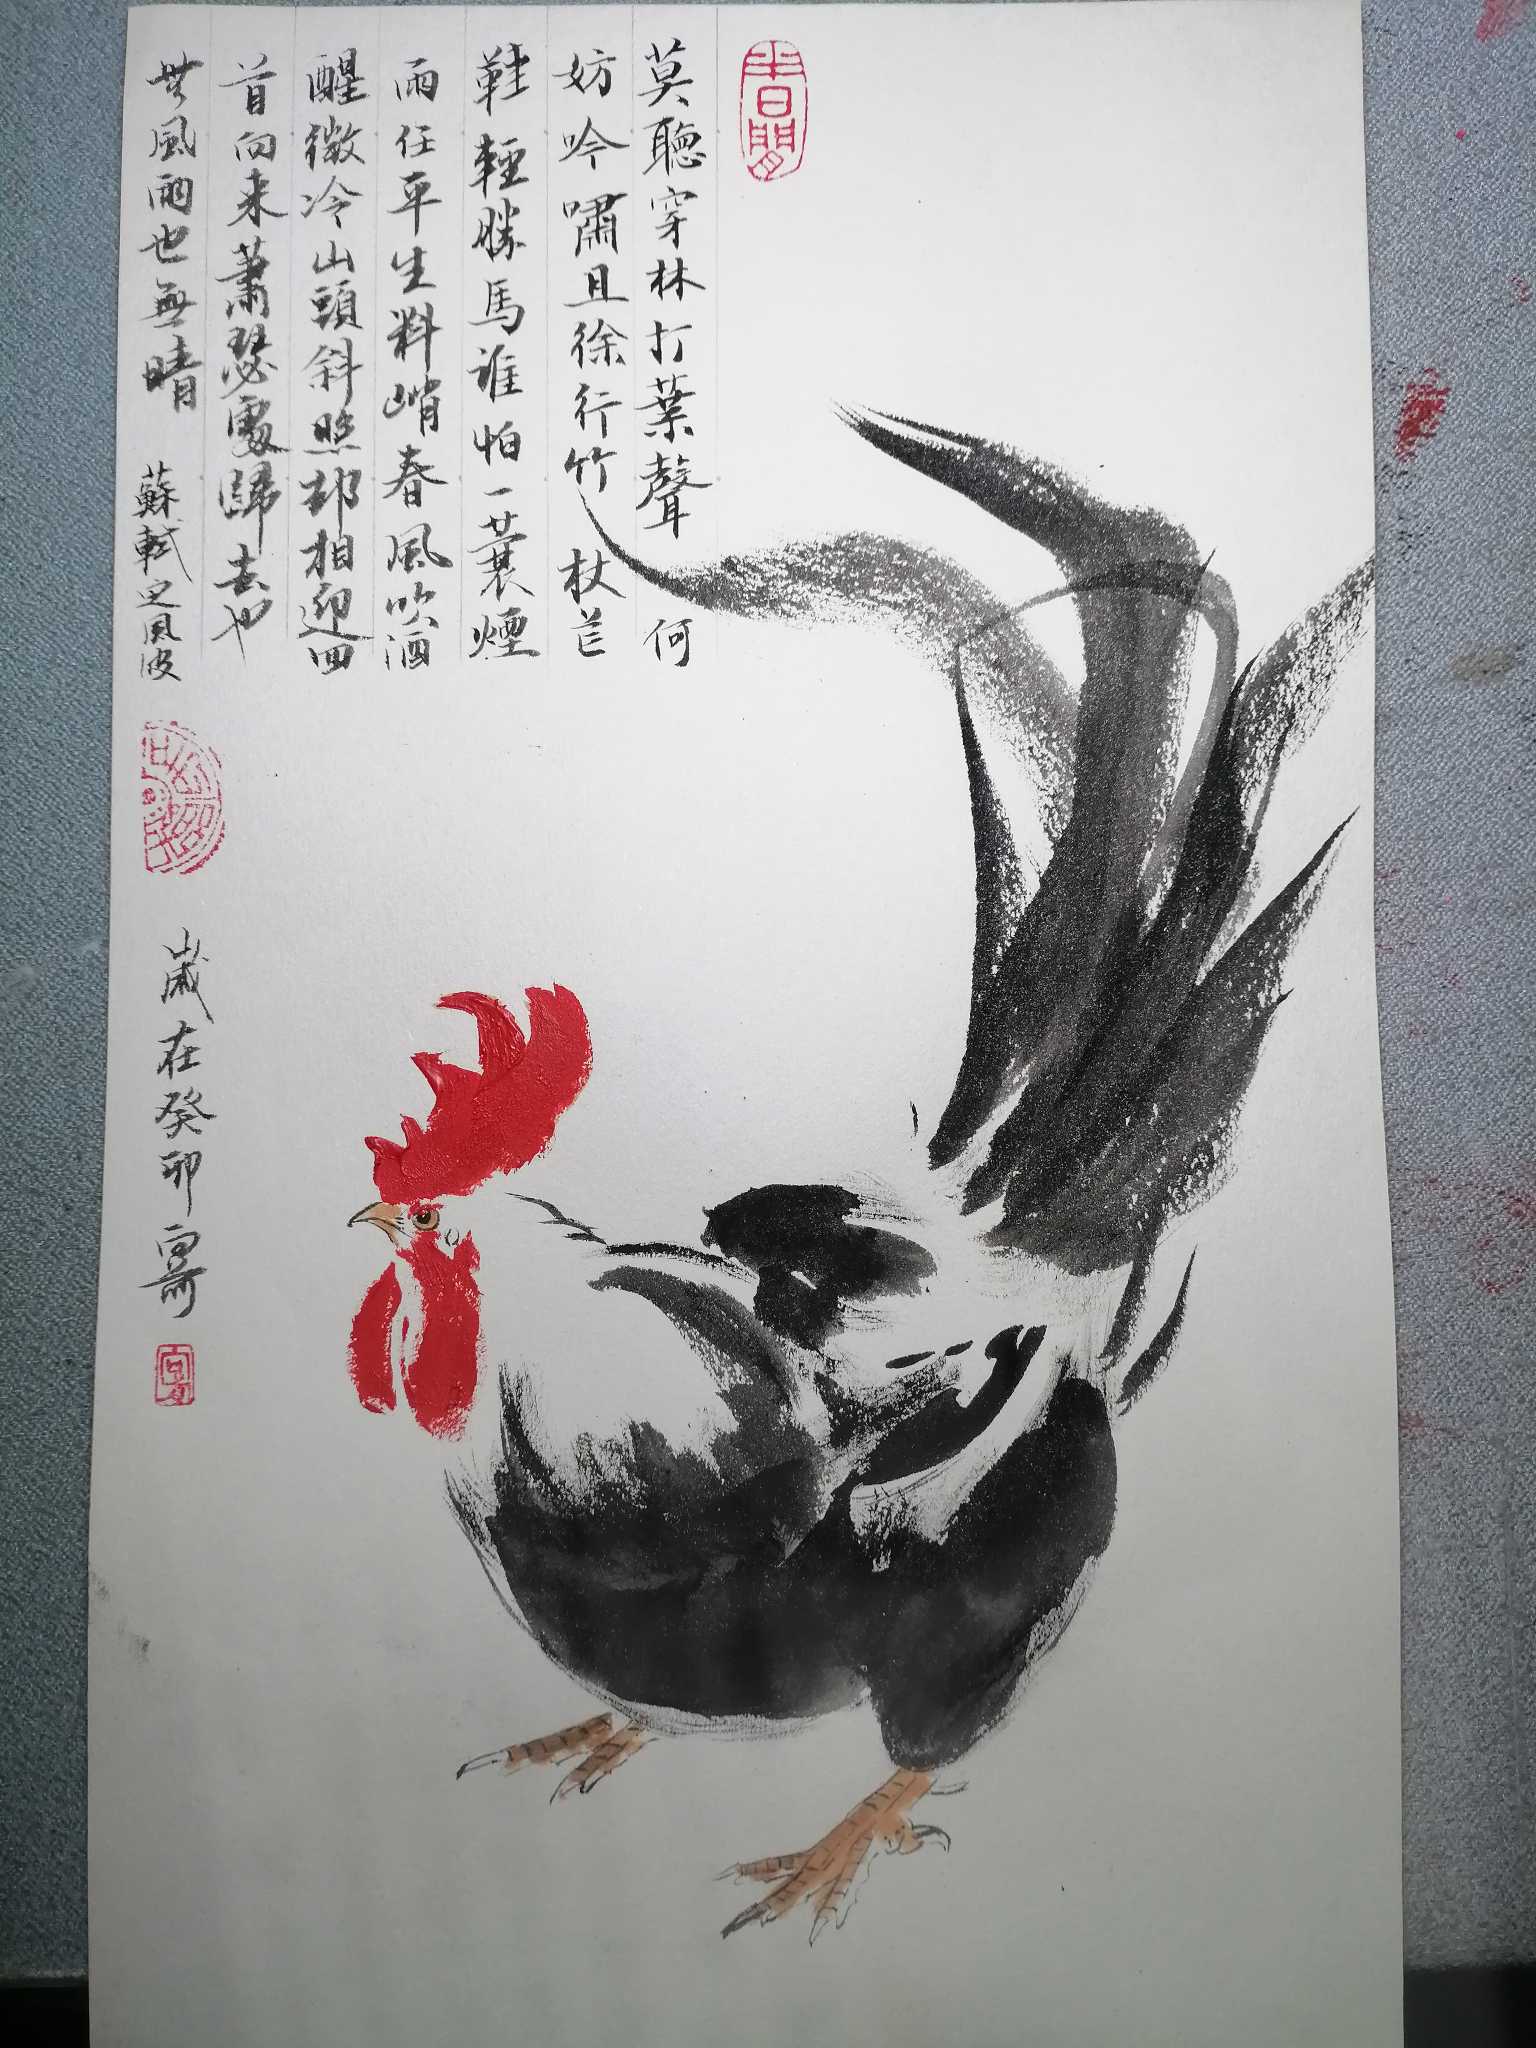 莫聽穿林打葉聲何
妨吟嘯且徐行竹杖芒
鞋輕勝馬誰怕一蓑煙
雨任平生料峭春風吹酒
醒微冷山頭斜照却相迎回
首向来蕭瑟處歸去也
無風雨也無晴
蘇軾定風波
歲在癸卯
半日閒